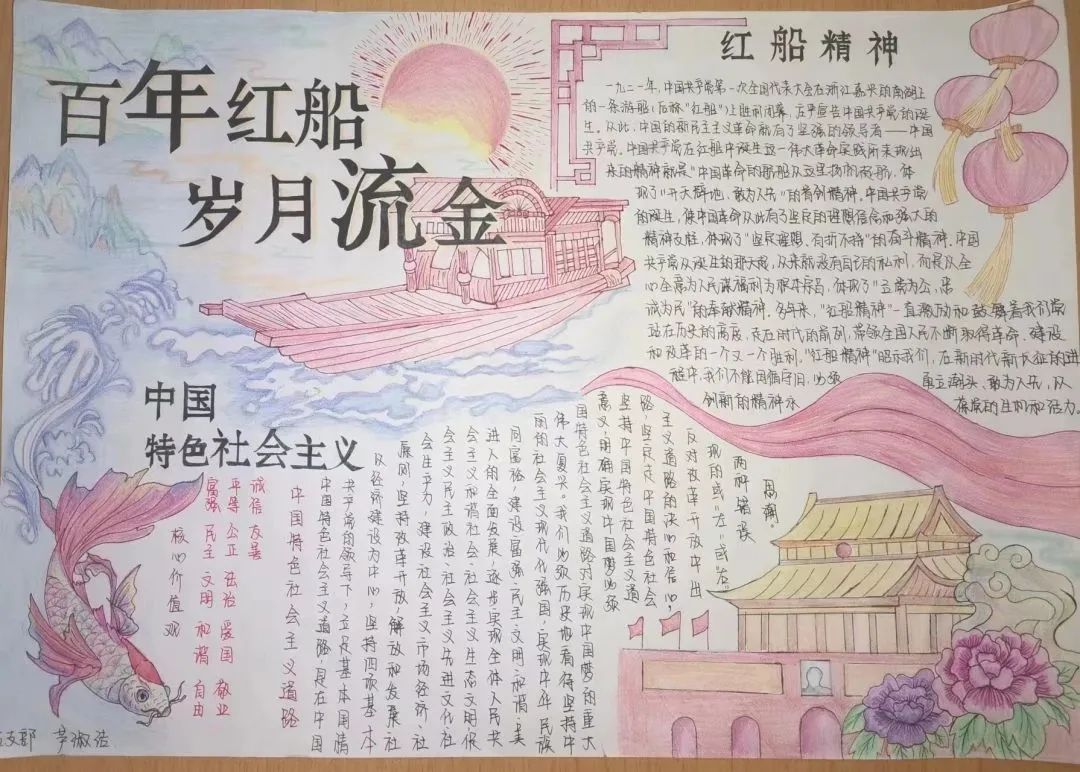 百年红船
岁月流金
红船精神
一九二一年,中国共产党第一次全国代表大会在浙江嘉兴的南湖上
的一条游船(后称“红船”)上胜利闭幕,庄严宣告中国共产党的诞
生。从此,中国的新民主主义革命就有了坚强的领导者——中国
共产党。中国共产党在红船中诞生这一伟大革命实践所表现出
来的精神就是“中国革命的航船从这里扬帆启航,体
现了“开天辟地、敢为人先”的首创精神。中国共产党
的诞生,使中国革命从此有了坚定的理想信念和强大的
精神支柱,体现了“坚定理想、百折不挠”的奋斗精神。中国
共产党从诞生的那天起,从来就没有自己的私利,而是以全
心全意为人民谋福利为根本宗旨,体现了“立党为公、忠
诚为民”的奉献精神。多年来,“红船精神”一直激励和鼓舞着我们党
站在历史的高度,走在时代的前列,带领全国人民不断取得革命、建设
和改革的一个又一个胜利。“红船精神”昭示我们,在新时代新长征的进
程中,我们不能因循守旧,必须 勇立潮头、敢为人先,以
创新的精神永 葆党的生机和活力。
中国
特色社会主义
核心价值观
富强 民主 文明 和谐 自由
平等 公正 法治 爱国 敬业
诚信 友善
中国特色社会主义道路
中国特色社会主义道路,是在中国
共产党的领导下,立足基本国情
以经济建设为中心,坚持四项基本
原则,坚持改革开放,解放和发展社
会生产力,建设社会主义市场经济、社
会主义民主政治、社会主义先进文化、社
会主义和谐社会、社会主义生态文明,促
进人的全面发展,逐步实现全体人民共
同富裕,建设富强民主文明和谐美
丽的社会主义现代化强国,实现中华民族
伟大复兴。我们必须历史地看待坚持中
国特色社会主义道路对实现中国梦的重大
意义,明确实现中国梦必须
坚持中国特色社会主义道
路,坚定走中国特色社会
主义道路的决心和信心,
反对改革开放中出
现的或“左”或右
两种错误
思潮。
支部